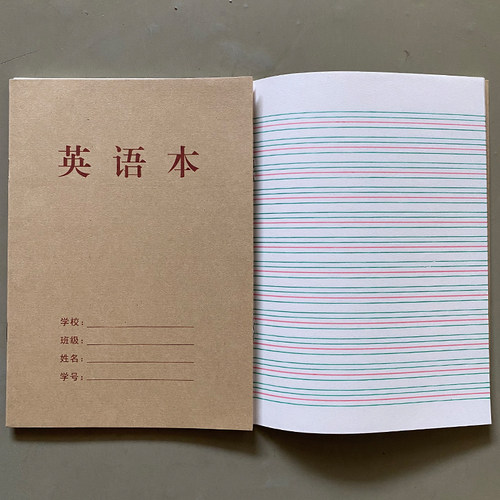 英语本
学校:
班级:
姓名:
学号: